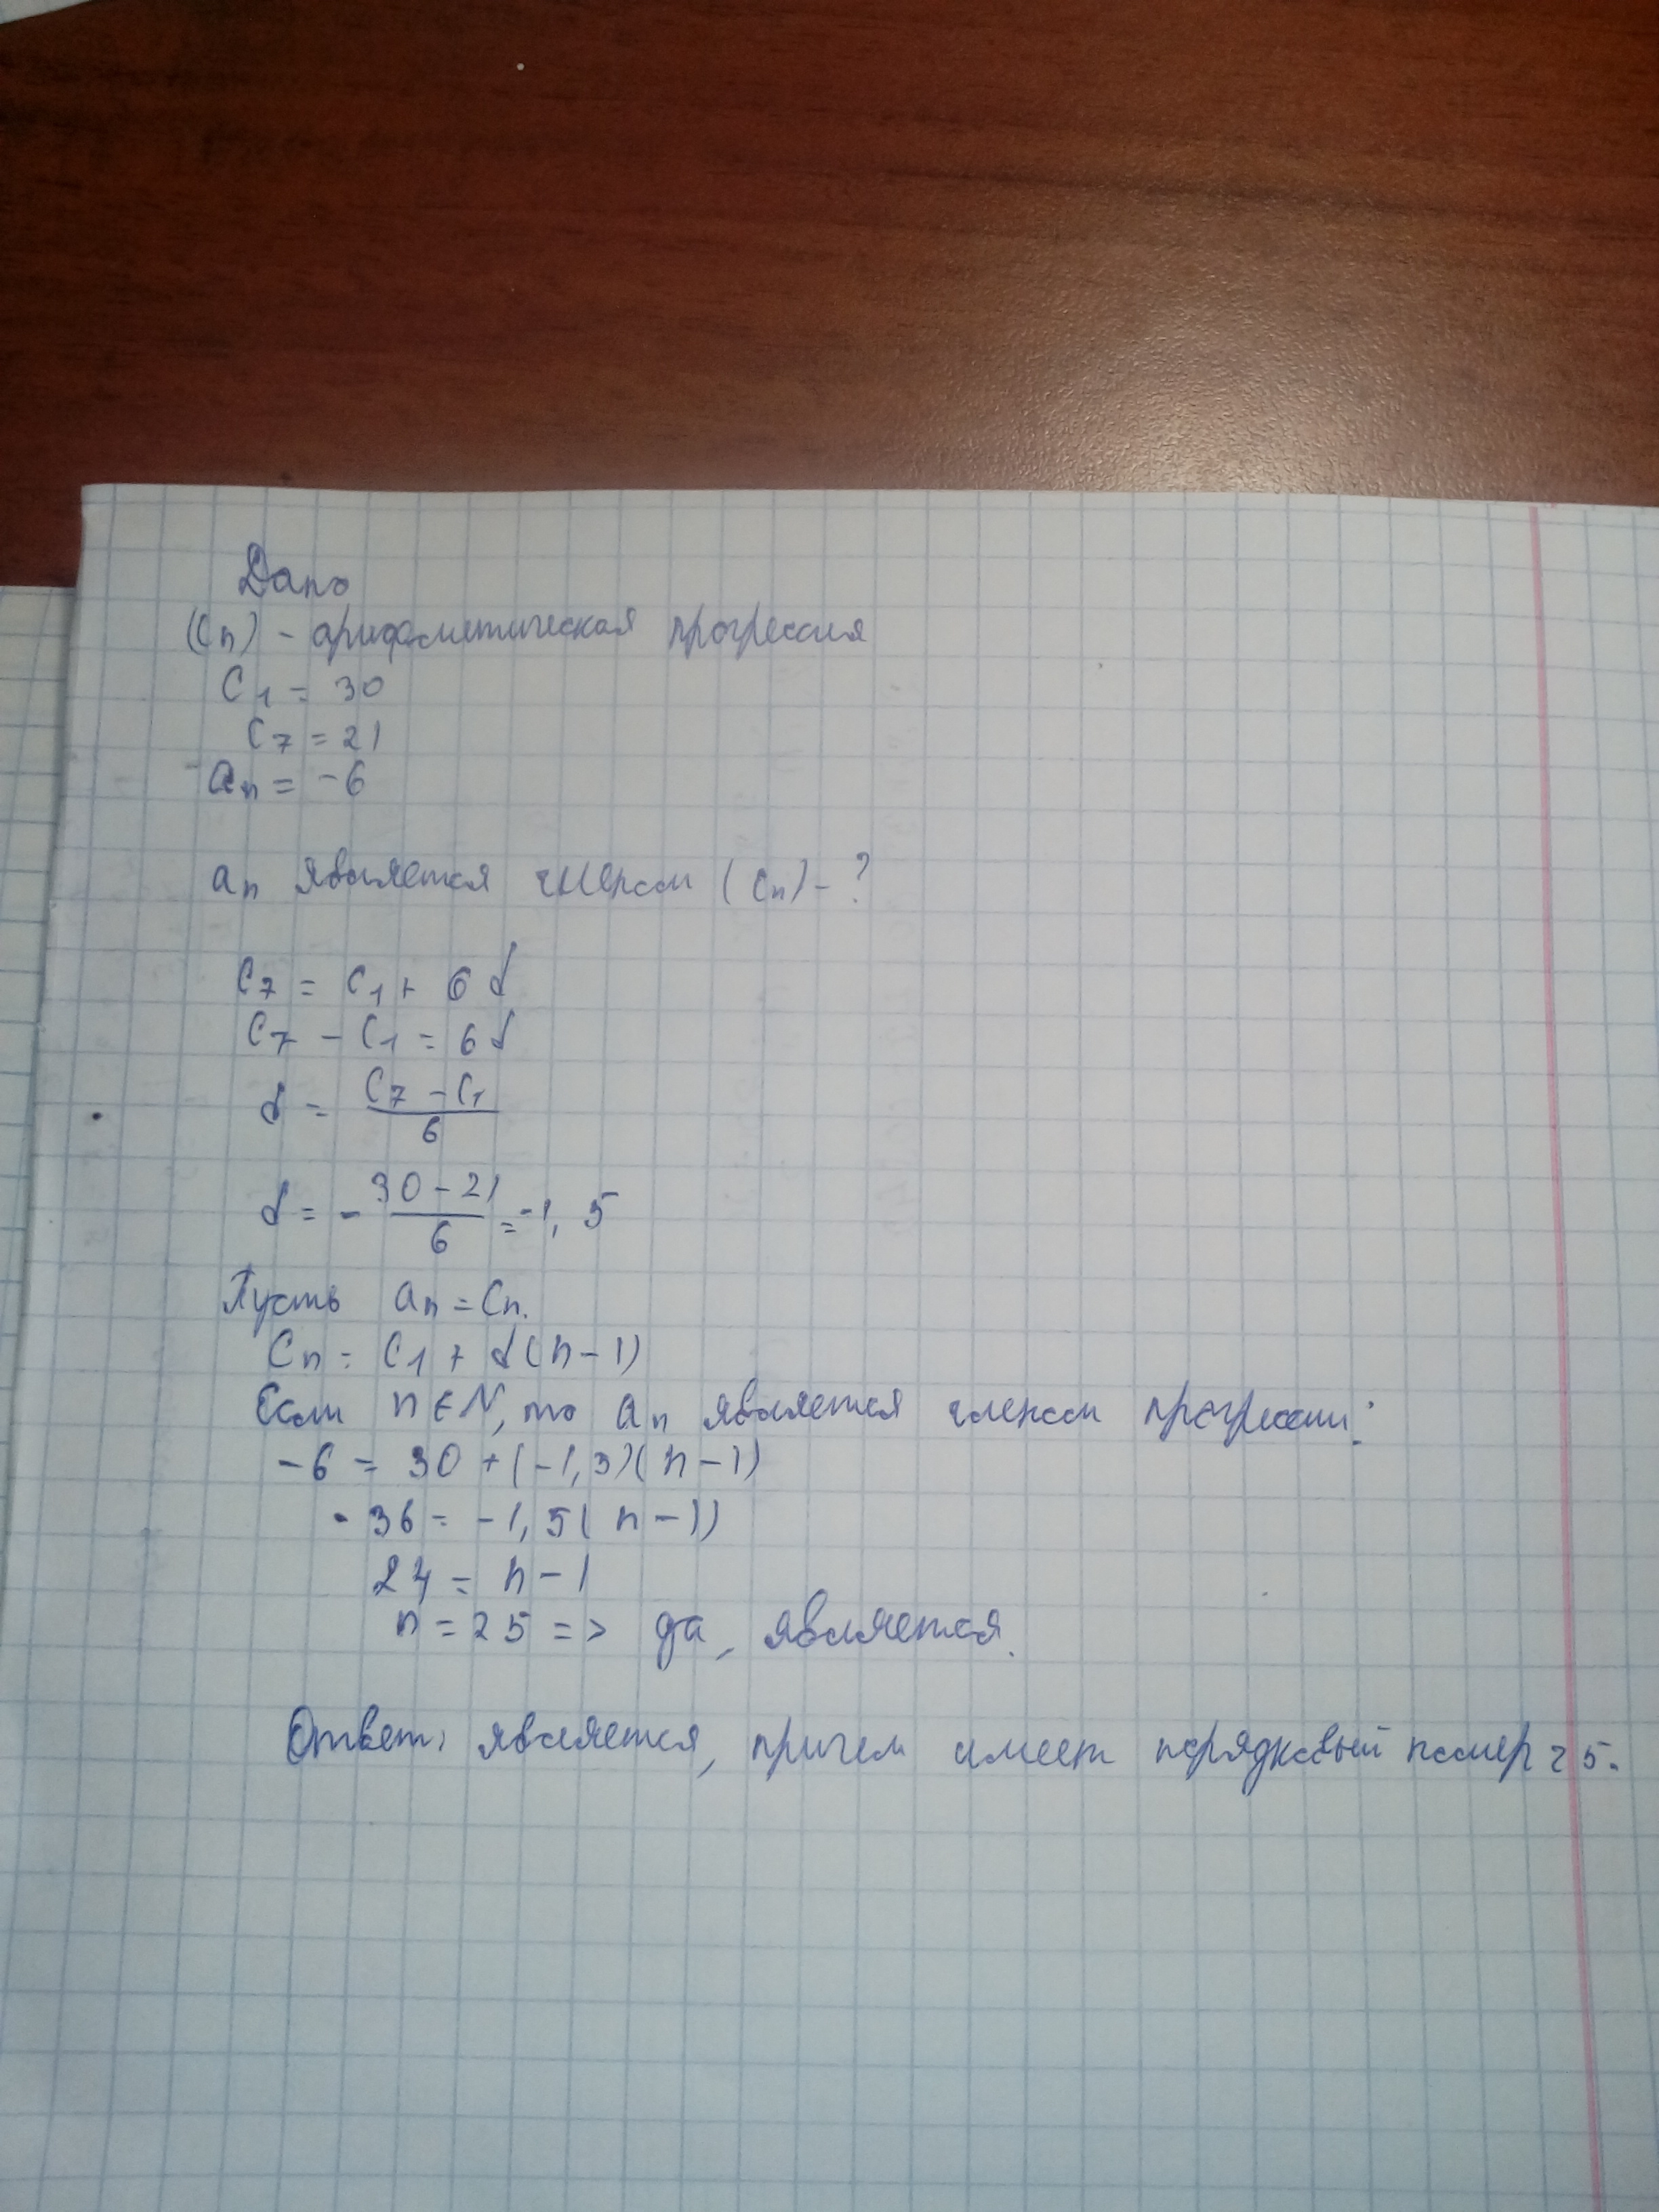 Дано
(Cn) - арифметическая прогрессия
C1 = 30
C7 = 21
an = -6
an является членом (cn) - ?
C7 = C1 + 6d
C7 - C1 = 6d
d = (C7 - C1)/6
d = - (30 - 21)/6 = -1,5
Пусть an = Cn.
Cn = C1 + d(n-1)
Если n ∈ N, то an является членом прогрессии:
-6 = 30 + (-1,5)(n-1)
-36 = -1,5(n-1)
24 = n-1
n = 25 => да, является.
Ответ: является, причем имеет порядковый номер 25.